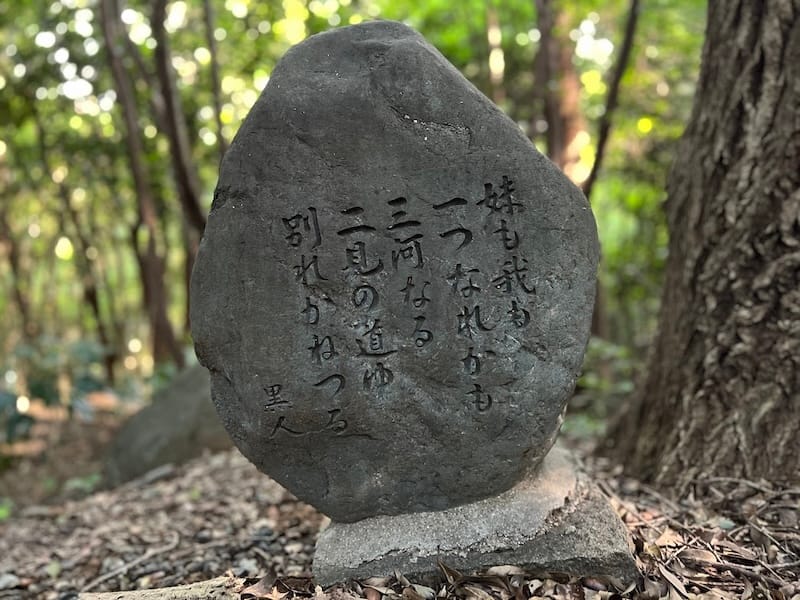 妹も我も
一つなれかも
三河なる
二見の道ゆ
別れかねつる
黒人